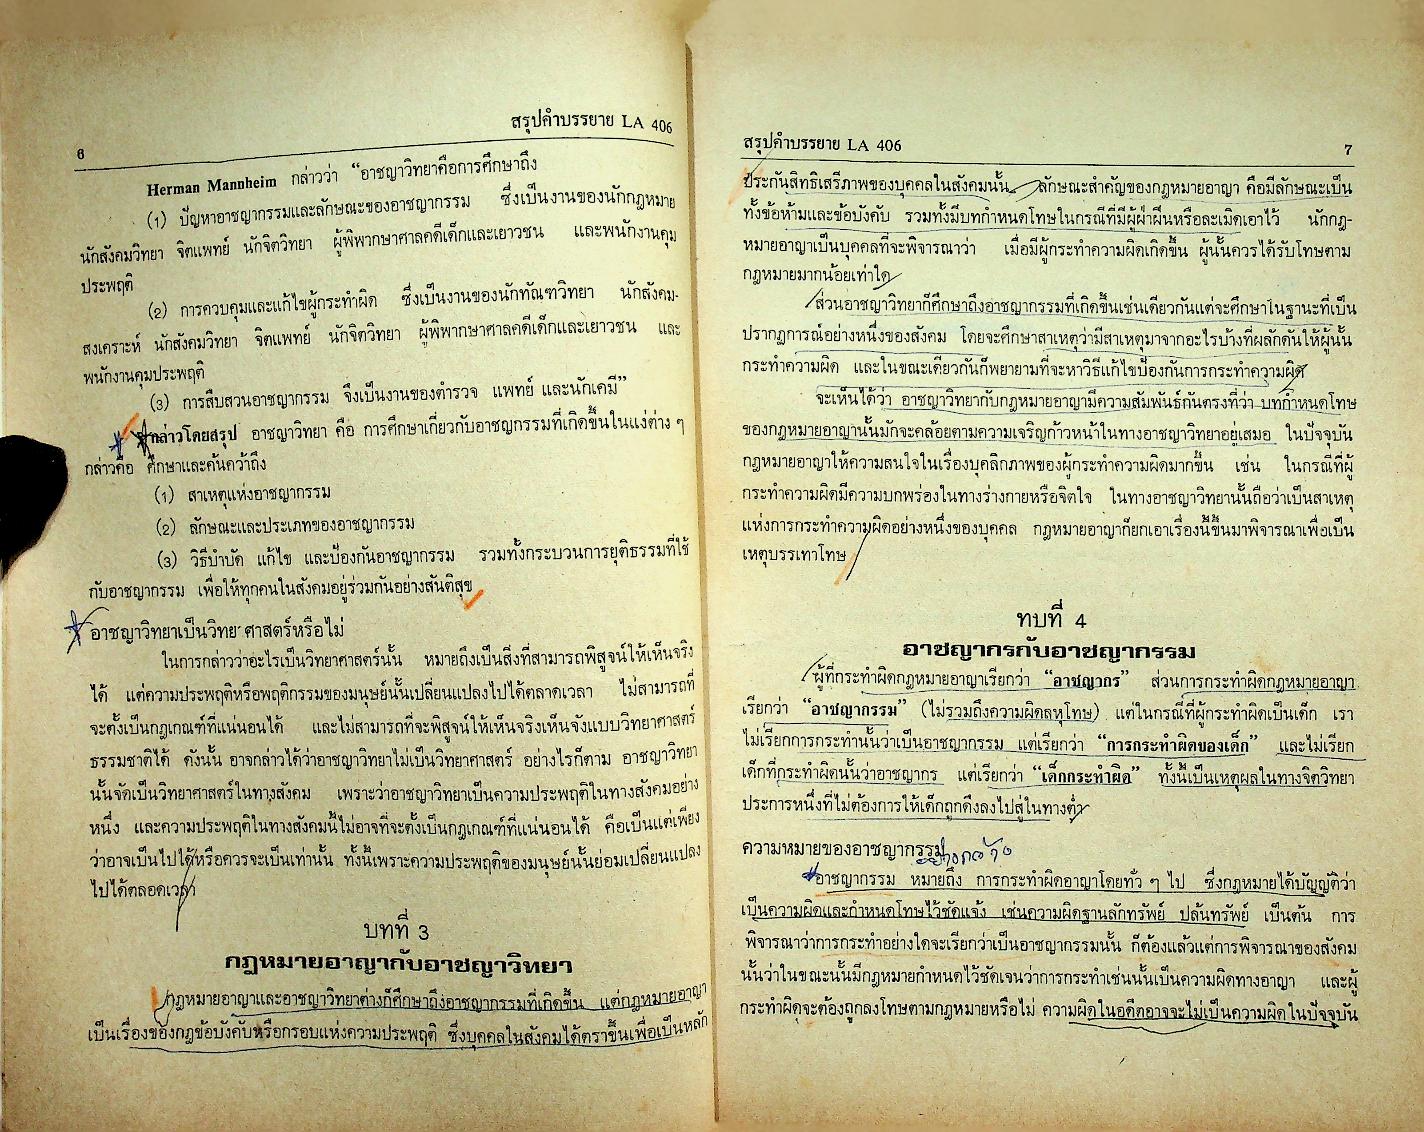 สรุปคำบรรยาย LA 406
6
Herman Mannheim กล่าวว่า “อาชญาวิทยาคือการศึกษาถึง
(1) ปัญหาอาชญากรรมและลักษณะของอาชญากรรม ซึ่งเป็นงานของนักกฎหมาย
นักสังคมวิทยา จิตแพทย์ นักจิตวิทยา ผู้พิพากษาศาลคดีเด็กและเยาวชน และพนักงานคุม
ประพฤติ
(2) การควบคุมและแก้ไขผู้กระทำผิด ซึ่งเป็นงานของนักทัณฑวิทยา นักสังคม-
สงเคราะห์ นักสังคมวิทยา จิตแพทย์ นักจิตวิทยา ผู้พิพากษาศาลคดีเด็กและเยาวชน และ
พนักงานคุมประพฤติ
(3) การสืบสวนอาชญากรรม จึงเป็นงานของตำรวจ แพทย์ และนักเคมี”
กล่าวโดยสรุป อาชญาวิทยา คือ การศึกษาเกี่ยวกับอาชญกรรมที่เกิดขึ้นในแง่ต่าง ๆ
กล่าวคือ ศึกษาและค้นคว้าถึง
(1) สาเหตุแห่งอาชญากรรม
(2) ลักษณะและประเภทของอาชญากรรม
(3) วิธีบำบัด แก้ไข และป้องกันอาชญากรรม รวมทั้งกระบวนการยุติธรรมที่ใช้
กับอาชญากรรม เพื่อให้ทุกคนในสังคมอยู่ร่วมกันอย่างสันติสุข
อาชญาวิทยาเป็นวิทยาศาสตร์หรือไม่
ในการกล่าวว่าอะไรเป็นวิทยาศาสตร์นั้น หมายถึงเป็นสิ่งที่สามารถพิสูจน์ให้เห็นจริง
ได้ แต่ความประพฤติหรือพฤติกรรมของมนุษย์นั้นเปลี่ยนแปลงไปได้ตลาดเวลา ไม่สามารถที่
จะตั้งเป็นกฎเกณฑ์ที่แน่นอนได้ และไม่สามารถที่จะพิสูจน์ให้เห็นจริงเห็นจังแบบวิทยาศาสตร์
ธรรมชาติได้ ดังนั้น อาจกล่าวได้ว่าอาชญาวิทยาไม่เป็นวิทยาศาสตร์ อย่างไรก็ตาม อาชญาวิทยา
นั้นจัดเป็นวิทยาศาสตร์ในทางสังคม เพราะว่าอาชญาวิทยาเป็นความประพฤติในทางสังคมอย่าง
หนึ่ง และความประพฤติในทางสังคมนี้ไม่อาจที่จะตั้งเป็นกฎเกณฑ์ที่แน่นอนได้ คือเป็นแต่เพียง
ว่าอาจเป็นไปได้หรือควรจะเป็นเท่านั้น ทั้งนี้เพราะความประพฤติของมนุษย์นั้นย่อมเปลี่ยนแปลง
ไปได้ตลอดเวลา
บทที่ 3
กฎหมายอาญากับอาชญาวิทยา
กฎหมายอาญาและอาชญาวิทยาต่างก็ศึกษาถึงอาชญากรรมที่เกิดขึ้น แต่กฎหมายอาญา
เป็นเรื่องของกฎข้อบังคับหรือกรอบแห่งความประพฤติ ซึ่งบุคคลในสังคมได้ตราขึ้นเพื่อเป็นหลัก
สรุปคำบรรยาย LA 406
7
ประกันสิทธิเสรีภาพของบุคคลในสังคมนั้น ลักษณะสำคัญของกฎหมายอาญา คือมีลักษณะเป็น
ทั้งข้อห้ามและข้อบังคับ รวมทั้งมีบทกำหนดโทษในกรณีที่มีผู้ฝ่าฝืนหรือละเมิดเอาไว้ นักกฎ-
หมายอาญาเป็นบุคคลที่จะพิจารณาว่า เมื่อมีผู้กระทำความผิดเกิดขึ้น ผู้นั้นควรได้รับโทษตาม
กฎหมายมากน้อยเท่าใด
ส่วนอาชญาวิทยาก็ศึกษาถึงอาชญากรรมที่เกิดขึ้นเช่นเดียวกันแต่จะศึกษาในฐานะที่เป็น
ปรากฏการณ์อย่างหนึ่งของสังคม โดยจะศึกษาสาเหตุว่ามีสาเหตุมาจากอะไรบ้างที่ผลักดันให้ผู้นั้น
กระทำความผิด และในขณะเดียวกันก็พยายามที่จะหาวิธีแก้ไขป้องกันการกระทำความผิด
จะเห็นได้ว่า อาชญาวิทยากับกฎหมายอาญามีความสัมพันธ์กันตรงที่ว่า บทกำหนดโทษ
ของกฎหมายอาญานั้นมักจะคล้อยตามความเจริญก้าวหน้าในทางอาชญาวิทยาอยู่เสมอ ในปัจจุบัน
กฎหมายอาญาให้ความสนใจในเรื่องบุคลิกภาพของผู้กระทำความผิดมากขึ้น เช่น ในกรณีที่ผู้
กระทำความผิดมีความบกพร่องในทางร่างกายหรือจิตใจ ในทางอาชญาวิทยานั้นถือว่าเป็นสาเหตุ
แห่งการกระทำความผิดอย่างหนึ่งของบุคคล กฎหมายอาญาก็ยกเอาเรื่องนี้ขึ้นมาพิจารณาเพื่อเป็น
เหตุบรรเทาโทษ
ทบที่ 4
อาชญากรกับอาชญากรรม
ผู้ที่กระทำผิดกฎหมายอาญาเรียกว่า “อาชญากร” ส่วนการกระทำผิดกฎหมายอาญา
เรียกว่า “อาชญากรรม” (ไม่รวมถึงความผิดลหุโทษ) แต่ในกรณีที่ผู้กระทำผิดเป็นเด็ก เรา
ไม่เรียกการกระทำนั้นว่าเป็นอาชญากรรม แต่เรียกว่า “การกระทำผิดของเด็ก” และไม่เรียก
เด็กที่กระทำผิดนั้นว่าอาชญากร แต่เรียกว่า “เด็กกระทำผิด” ทั้งนี้เป็นเหตุผลในทางจิตวิทยา
ประการหนึ่งที่ไม่ต้องการให้เด็กถูกดึงลงไปสู่ในทางต่ำ
ความหมายของอาชญากรรม อย่างกว้าง
อาชญากรรม หมายถึง การกระทำผิดอาญาโดยทั่ว ๆ ไป ซึ่งกฎหมายได้บัญญัติว่า
เป็นความผิดและกำหนดโทษไว้ชัดแจ้ง เช่นความผิดฐานลักทรัพย์ ปล้นทรัพย์ เป็นต้น การ
พิจารณาว่าการกระทำอย่างใดจะเรียกว่าเป็นอาชญากรรมนั้น ก็ต้องแล้วแต่การพิจารณาของสังคม
นั้นว่าในขณะนั้นมีกฎหมายกำหนดไว้ชัดเจนว่าการกระทำเช่นนั้นเป็นความผิดทางอาญา และผู้
กระทำผิดจะต้องถูกลงโทษตามกฎหมายหรือไม่ ความผิดในอดีตอาจจะไม่เป็นความผิดในปัจจุบัน